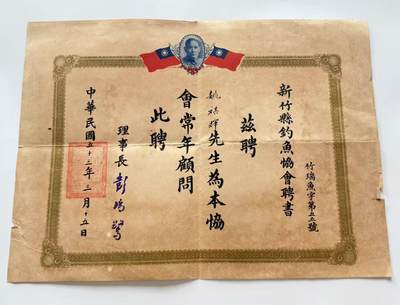 新竹縣釣魚協會聘書
竹瑞魚字第五五號
茲聘
姚 先生為本協
會常年顧問
此聘
理事長 彭
中華民國五十三年二月十五日